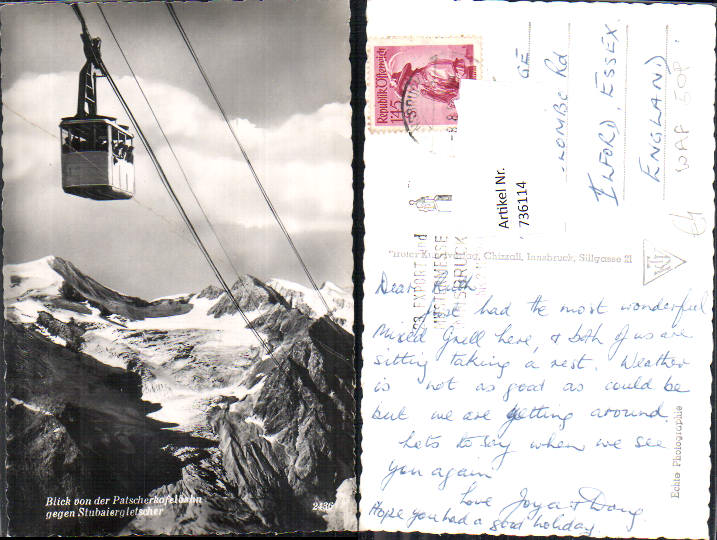 Blick von der Patscherkofelbahn
gegen Stubaiergletscher
2436
Republik Österreich
1.45
Artikel Nr.
736114
GE
LOMBE Rd
ILFORD. ESSEX.
ENGLAND
WAP 50P.
Tiroler Kunstverlag, Chizzali, Innsbruck, Sillgasse 21
EXPORT und
MUSTERMESSE
INNSBRUCK
Echte Photographie
Dear
Just had the most wonderful
Mixed Grill here, & both of us are
sitting taking a rest. Weather
is not as good as could be
but we are getting around.
Lots to say when we see
you again
Love Joya & Doug.
Hope you had a good holiday.